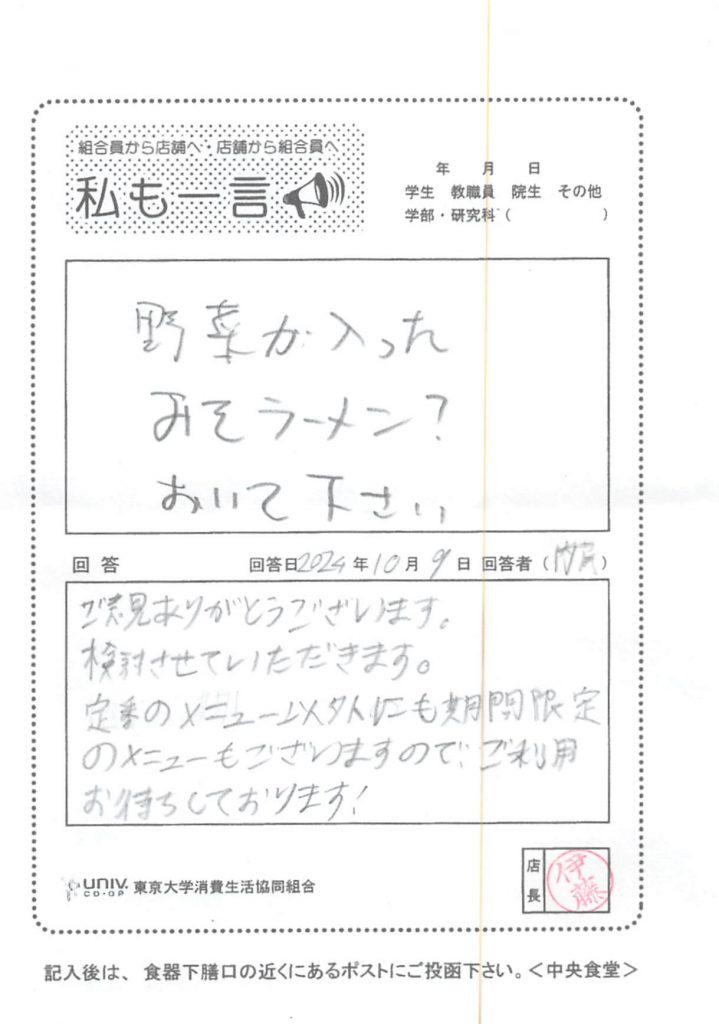 組合員から店舗へ・店舗から組合員へ
私も一言
年 月 日
学生 教職員 院生 その他
学部・研究科（ ）
野菜が入った
みそラーメン?
おいて下さい
回答 回答日2024年10月9日 回答者（ ）
ご意見ありがとうございます。
検討させていただきます。
定番のメニュー以外にも期間限定
のメニューもございますので、ご利用
お待ちしております!
UNIV. CO-OP 東京大学消費生活協同組合
店長 伊藤
記入後は、食器下膳口の近くにあるポストにご投函下さい。＜中央食堂＞